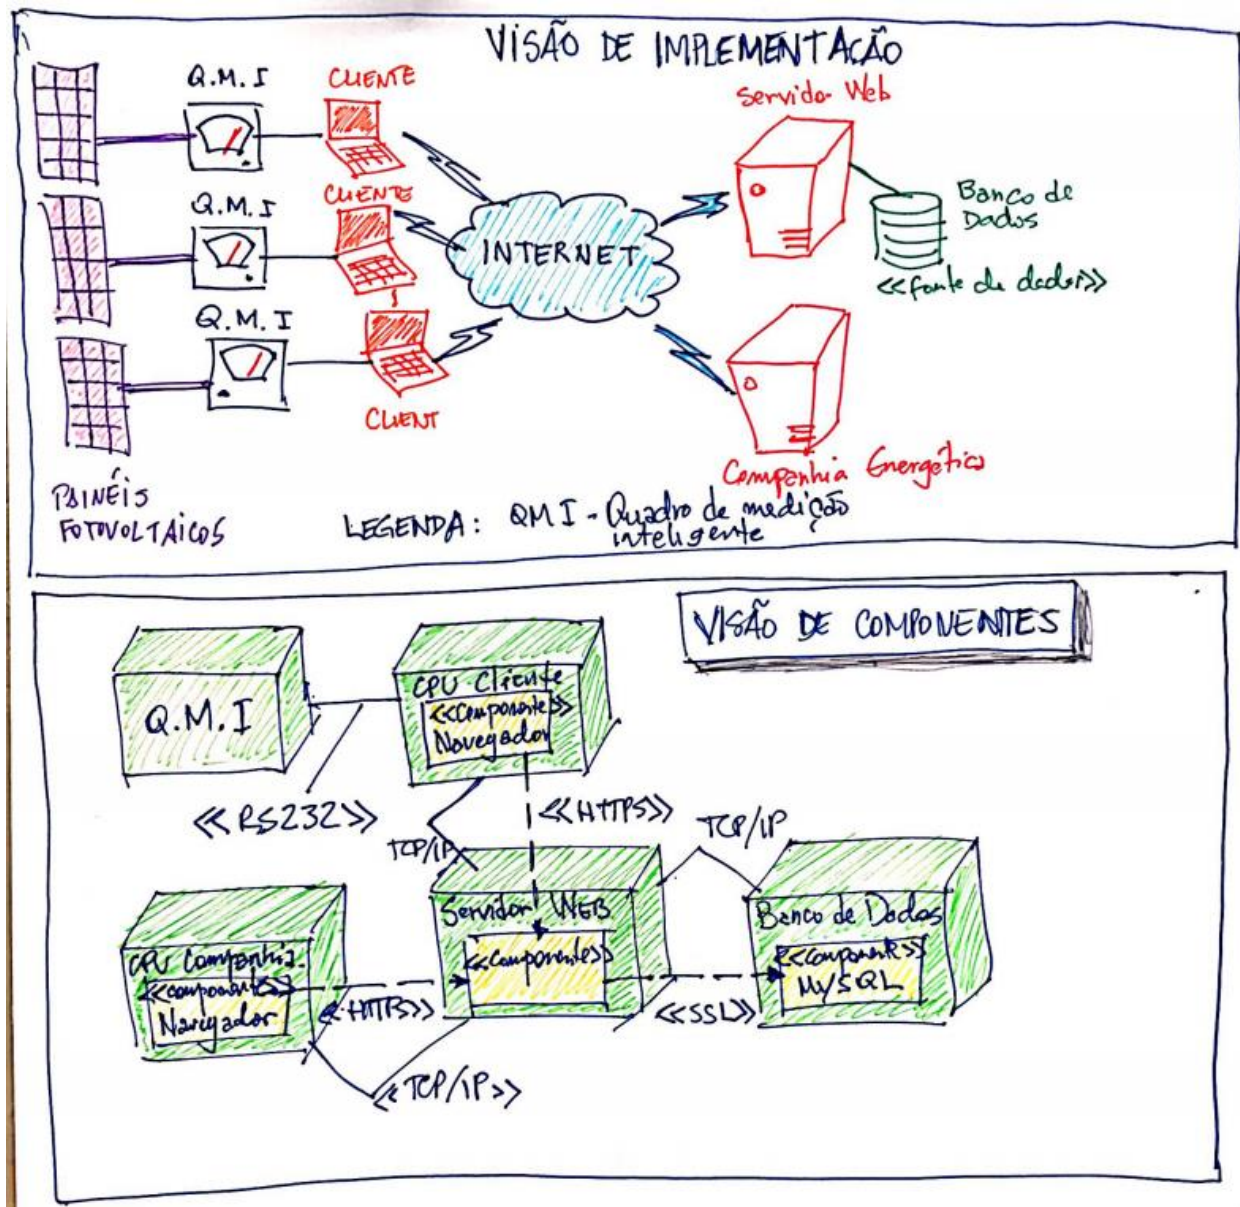 VISÃO DE IMPLEMENTAÇÃO
Q.M.I
CLIENTE
Servidor Web
Q.M.I
CLIENTE
INTERNET
Banco de
Dados
<<fonte de dados>>
Q.M.I
CLIENT
Companhia Energética
PAINÉIS
FOTOVOLTAICOS
LEGENDA: QMI - Quadro de medição
inteligente
VISÃO DE COMPONENTES
Q.M.I
CPU Cliente
<<Componente>>
Navegador
<<RS232>>
<<HTTPS>>
TCP/IP
TCP/IP
Servidor WEB
<<componente>>
Banco de Dados
<<componente>>
MySQL
CPU Companhia
<<componente>>
Navegador
<<HTTPS>>
<<SSL>>
<<TCP/IP>>